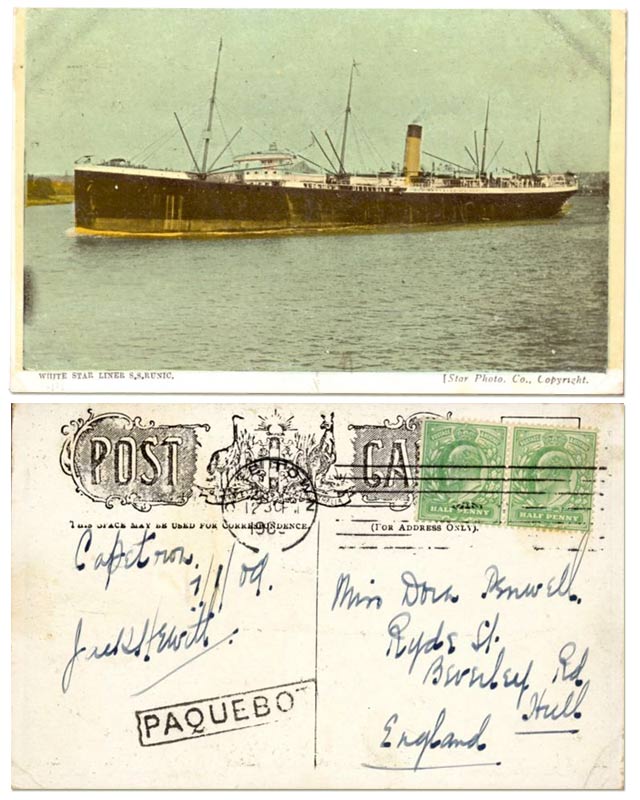 WHITE STAR LINER S.S.RUNIC.
Star Photo. Co., Copyright.
POST CA
THIS SPACE MAY BE USED FOR CORRESPONDENCE.
(FOR ADDRESS ONLY).
HALF PENNY
HALF PENNY
Capetown.
/09.
Miss Dora Penwell.
Ryde St.
Beverley Rd
Hull
England
PAQUEBOT